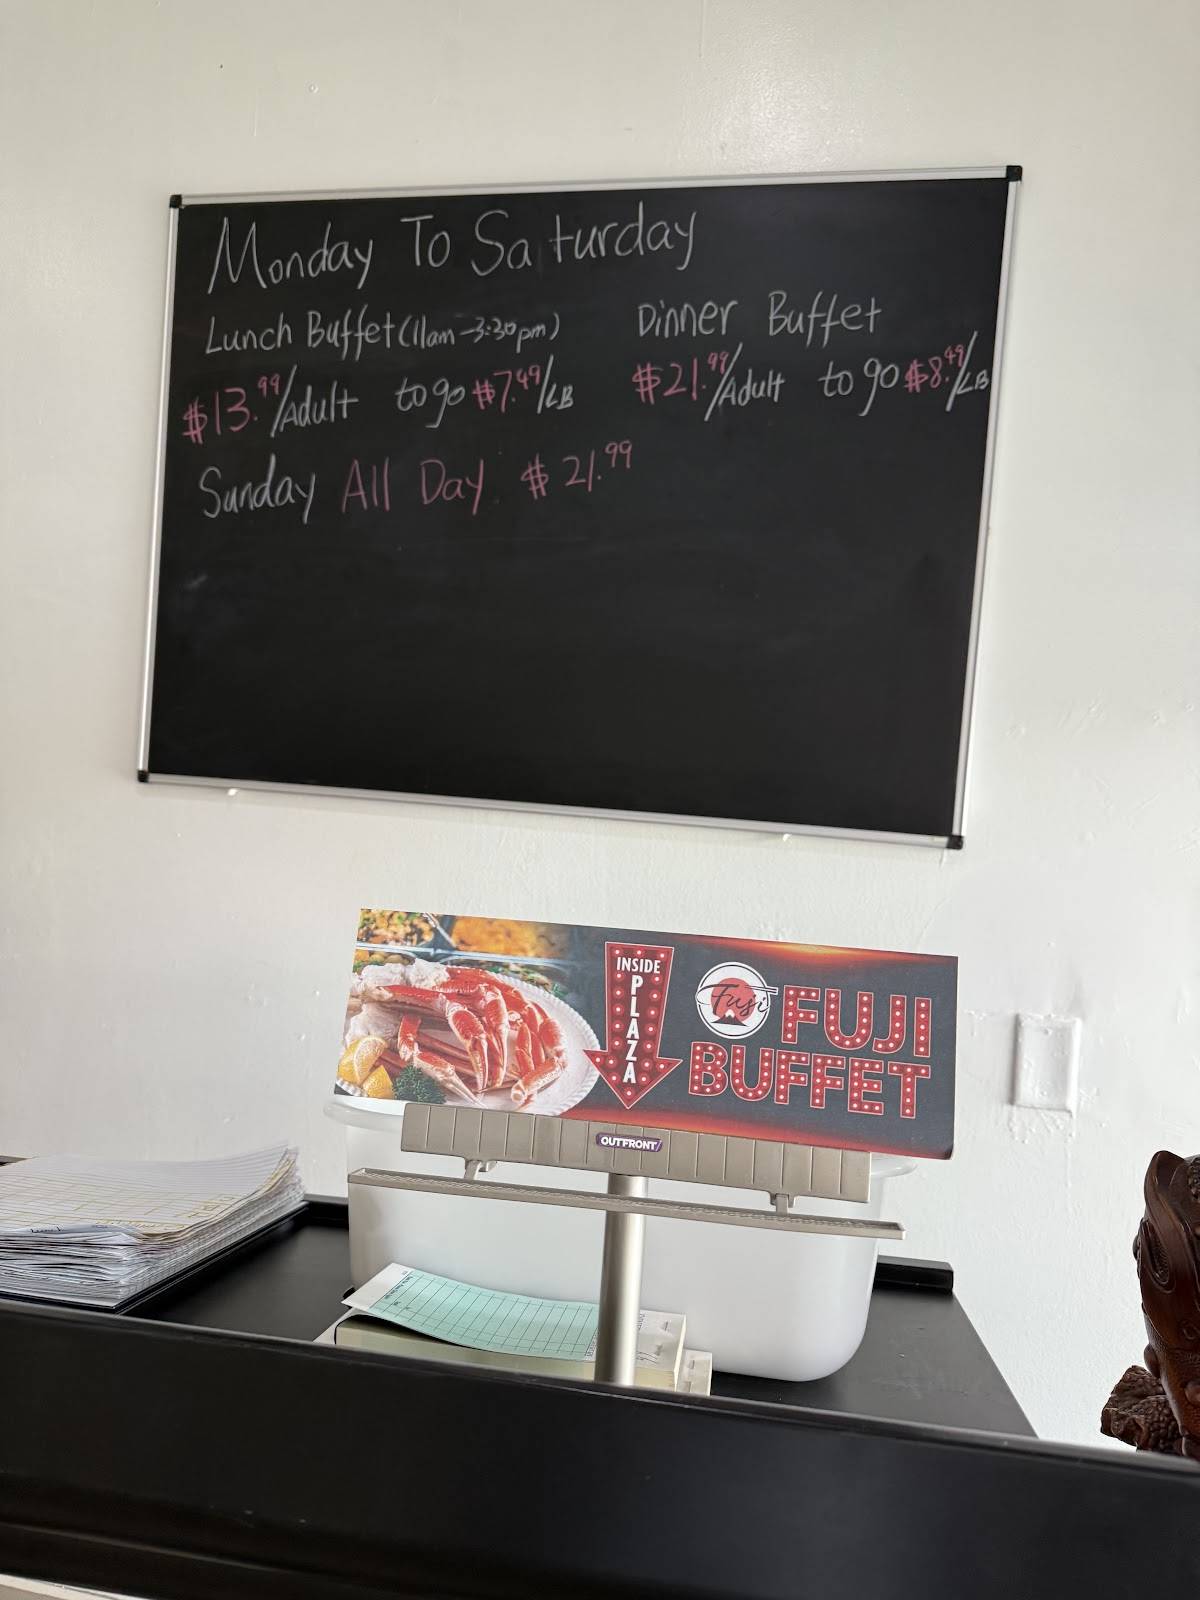 Monday To Saturday
Lunch Buffet (11am-3:30pm)
$13.99/Adult to go $7.49/LB
Dinner Buffet
$21.99/Adult to go $8.49/LB
Sunday All Day $21.99
INSIDE
PLAZA
Fuji
FUJI
BUFFET
OUTFRONT/